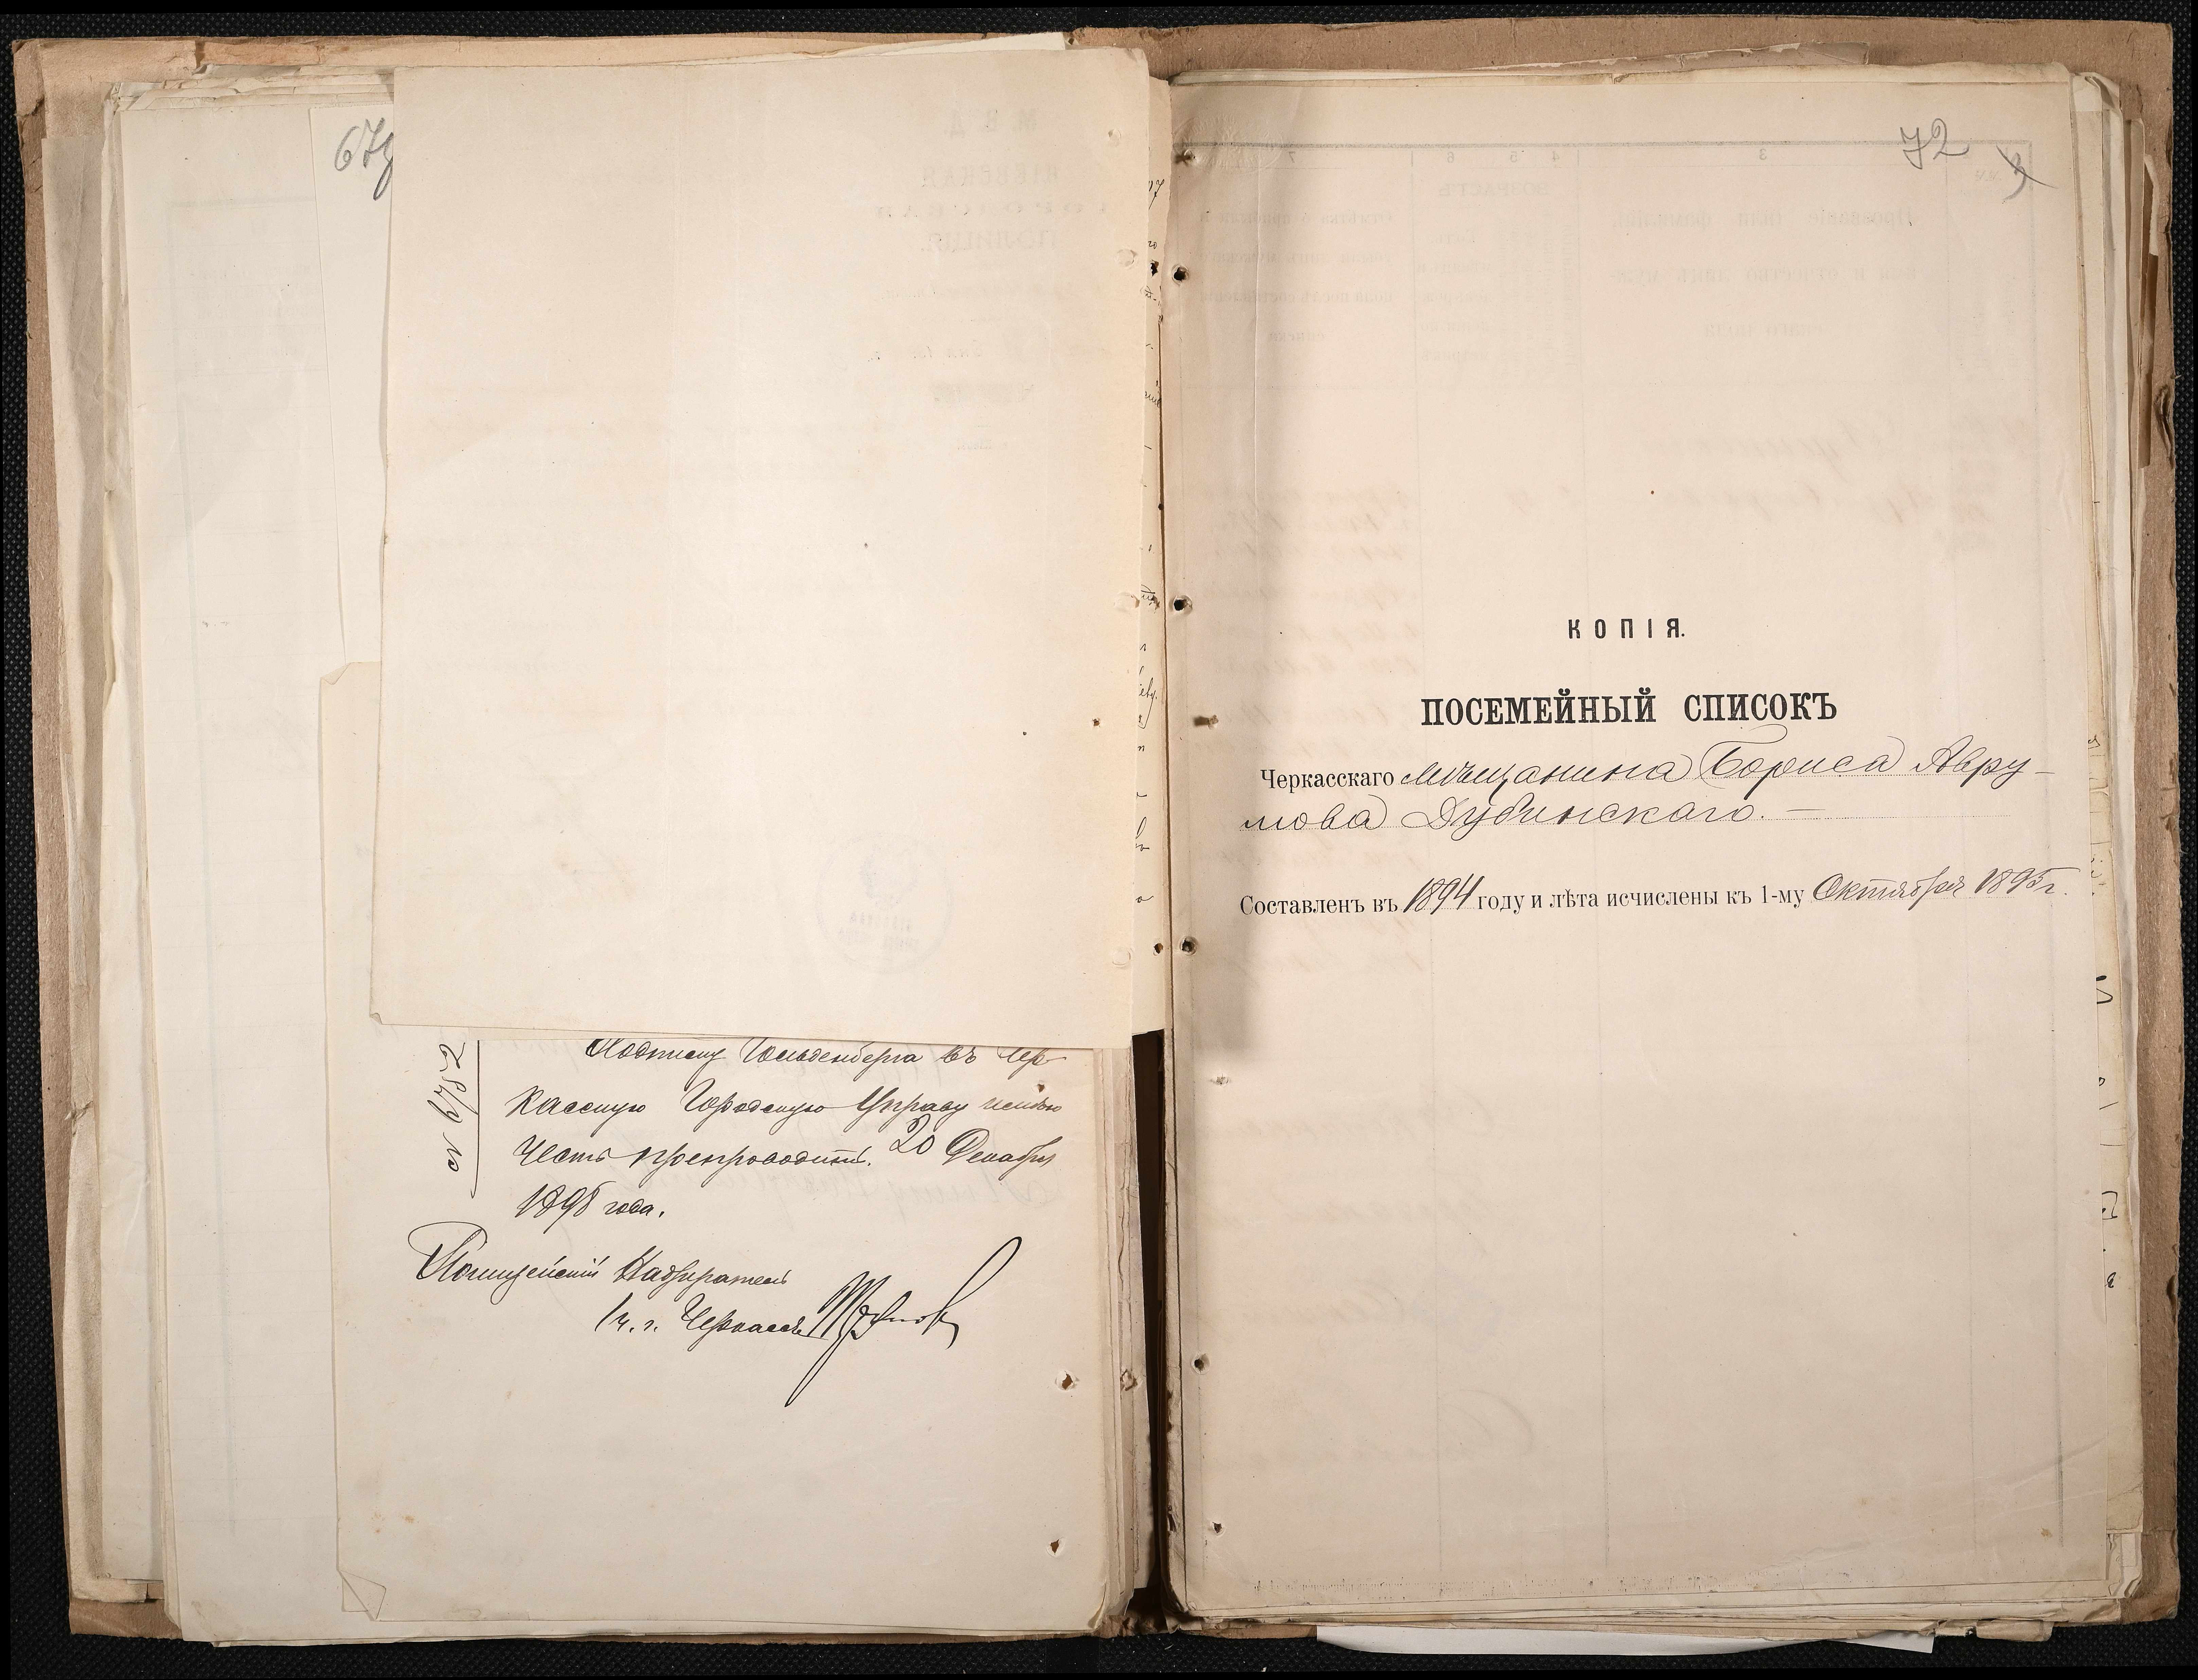 679
№ 6782
Подписку Гольденберга въ Чер-
касскую Городскую Управу имѣю
честь препроводить. 20 Декабря
1895 года.
Полицейскій Надзиратель
1 ч. г. Черкассъ
72
3
КОПІЯ.
ПОСЕМЕЙНЫЙ СПИСОКЪ
Черкасскаго мѣщанина Бориса Авру-
мова Дубинскаго. —
Составленъ въ 1894 году и лѣта исчислены къ 1-му Октября 1895 г.